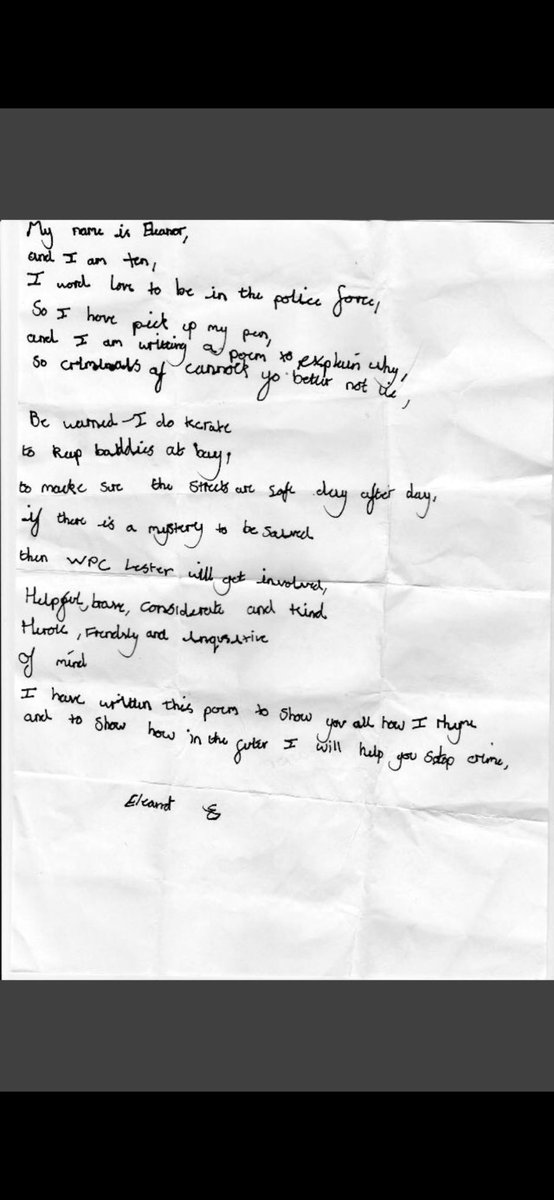 My name is Eleanor,
and I am ten,
I woul love to be in the police force,
So I have pick up my pen,
and I am writting a poem to explain why,
So criminals of cannock yo better not lie,
Be warned I do kerate
to keep baddies at bay,
to make sure the streets are safe day after day,
if there is a mystery to be solved
then WPC Lester will get involved,
Helpful, brave, considerate and kind
Heroic, Frendsly and inqusitive
Of mind
I have written this poem to show you all how I rhyme
and to show how in the futer I will help you stop crime,
Eleanor